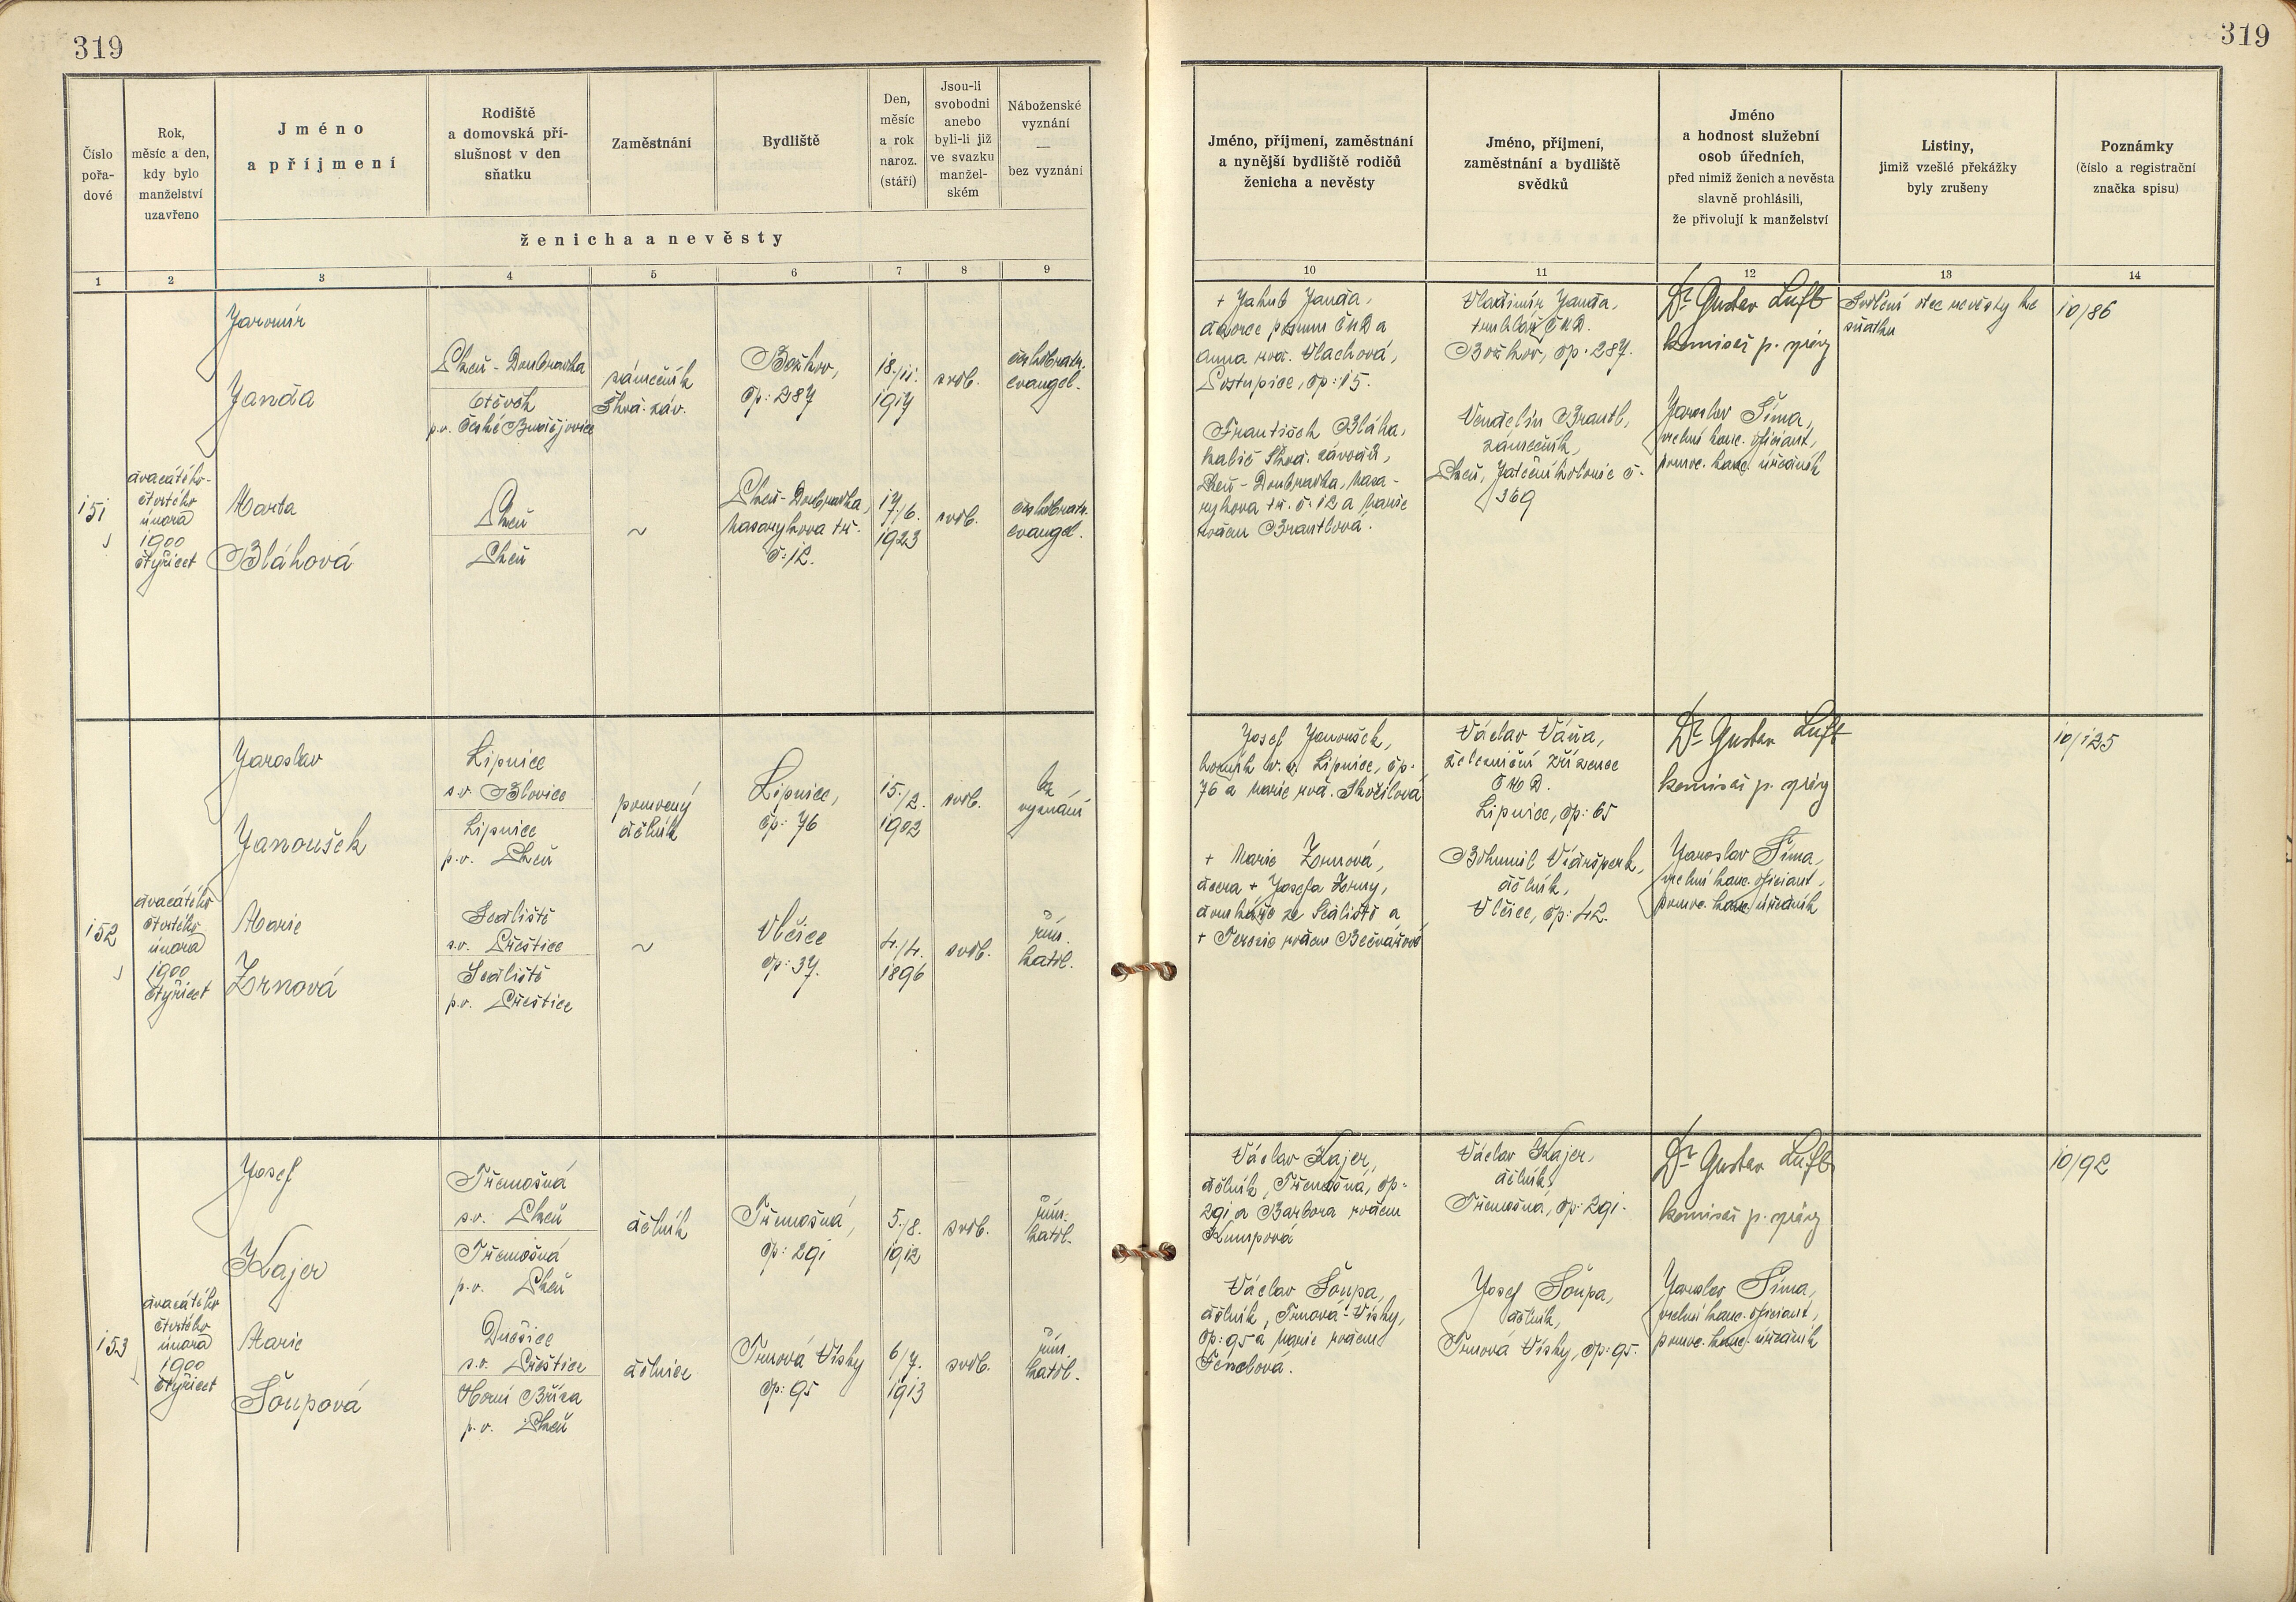 319
319
Číslo
pořa-
dové
Rok,
měsíc a den,
kdy bylo
manželství
uzavřeno
Jméno
a příjmení
Rodiště
a domovská pří-
slušnost v den
sňatku
Zaměstnání
Bydliště
Den,
měsíc
a rok
naroz.
(stáří)
Jsou-li
svobodni
anebo
byli-li již
ve svazku
manžel-
ském
Náboženské
vyznání
—
bez vyznání
ženicha a nevěsty
Jméno, příjmení, zaměstnání
a nynější bydliště rodičů
ženicha a nevěsty
Jméno, příjmení,
zaměstnání a bydliště
svědků
Jméno
a hodnost služební
osob úředních,
před nimiž ženich a nevěsta
slavně prohlásili,
že přivolují k manželství
Listiny,
jimiž vzešlé překážky
byly zrušeny
Poznámky
(číslo a registrační
značka spisu)
1 2 3 4 5 6 7 8 9 10 11 12 13 14
151
dvacátého-
čtvrtého
února
1900
čtyřicet
Jaromír
Janda
Plzeň - Doubravka
p.o. České
zámečník
Škod. záv.
Božkov,
čp: 287
18./11.
1917
svob.
českobratr.
evangel.
Marta
Bláhová
Plzeň
Plzeň
~
Plzeň - Doubravka,
Masarykova tř.
č: 12.
17./6.
1923
svob.
českobratr.
evangel.
+ Jakub Janda,
dozorce posunu ČMD a
Anna roz. Vlachová,
Postupice, čp: 15.
František Bláha,
kalič Škod. závodů,
Plzeň - Doubravka, Masa-
rykova tř. č. 12 a Marie
rozen Brantlová.
Vladimír Janda,
truhlář ČMD.
Božkov, čp. 287.
Vendelín Brantl,
zámečník,
Plzeň, Jateční kolonie č.
369
Dr Gustav Luft
komisař p. správy
Jaroslav Šíma,
vrchní kanc. oficiant,
pomoc. kanc. úředník
Svolení otce nevěsty ke
sňatku
10/86
152
dvacátého
čtvrtého
února
1900
čtyřicet
Jaroslav
Janoušek
Lipnice
s.o. Blovice
Lipnice
p.o. Plzeň
pomocný
dělník
Lipnice,
čp: 76
15./2.
1902
svob.
bez
vyznání
Marie
Zrnová
Sedliště
s.o. Přeštice
Sedliště
p.o. Přeštice
~
Vlčice
čp: 37.
4./4.
1896
svob.
řím.
katol.
Josef Janoušek,
horník v.v. Lipnice, čp.
76 a Marie roz. Skočilová
+ Marie Zrnová,
dcera + Josefa Zrny,
domkáře ze Sedliště a
+ Terezie rozen Bečvářové
Václav Váňa,
železniční zřízenec
ČMD.
Lipnice, čp: 65
Bohumil
dělník,
Vlčice, čp: 42.
Dr Gustav Luft
komisař p. správy
Jaroslav Šíma,
vrchní kanc. oficiant,
pomoc. kanc. úředník
10/125
153
dvacátého
čtvrtého
února
1900
čtyřicet
Josef
Kajer
Třemošná
s.o. Plzeň
Třemošná
p.o. Plzeň
dělník
Třemošná,
čp: 291
5./8.
1912
svob.
řím.
katol.
Marie
Šoupová
Dnešice
s.o. Přeštice
Horní Bříza
p.o. Plzeň
dělnice
Trnová Vísky
čp: 95
6/7.
1913
svob.
řím.
katol.
Václav Kajer,
dělník, Třemošná, čp.
291 a Barbora rozen
Kumpová
Václav Šoupa,
dělník, Trnová-Vísky,
čp: 95 a Marie rozen
Fenclová.
Václav Kajer,
dělník,
Třemošná, čp: 291.
Josef Šoupa,
dělník,
Trnová Vísky, čp: 95.
Dr Gustav Luft
komisař p. správy
Jaroslav Šíma,
vrchní kanc. oficiant,
pomoc. kanc. úředník
10/92